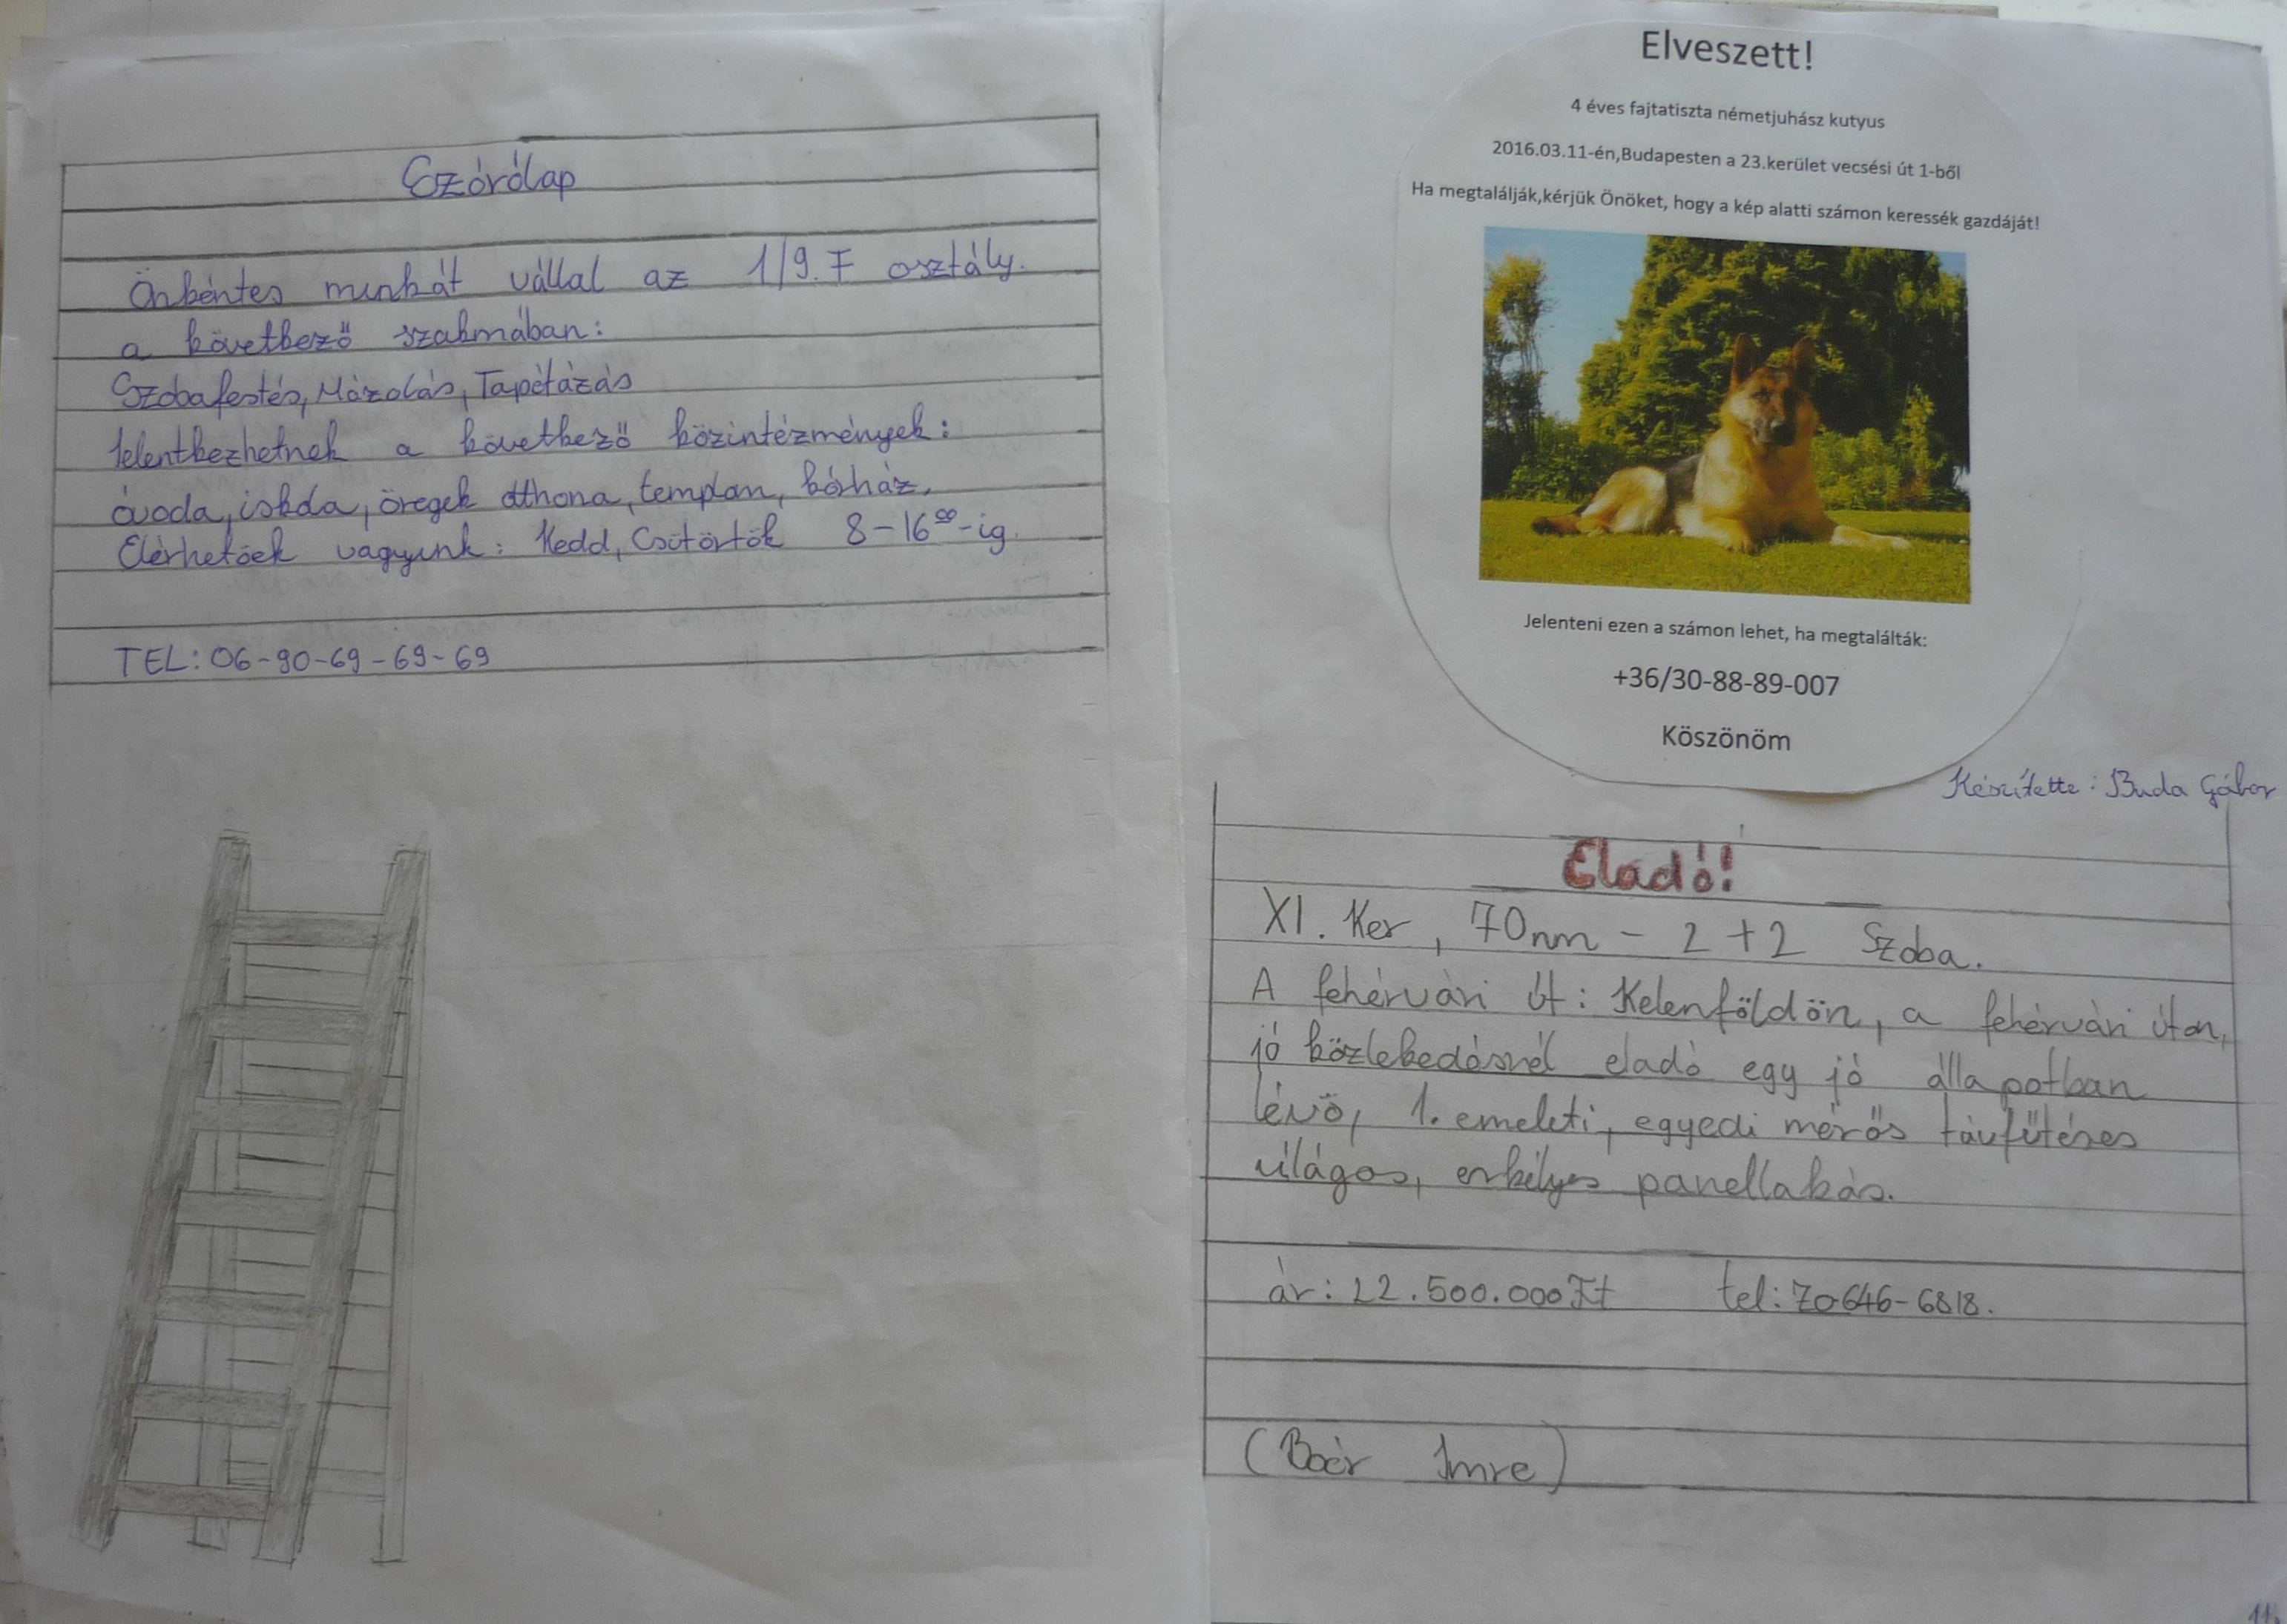 Szórólap
Önkéntes munkát vállal az 1/9. F osztály.
a következő szakmában:
Szobafestés, Mázolás, Tapétázás
Jelentkezhetnek a következő közintézmények:
óvoda, iskola, öregek otthona, templom, kórház,
Elérhetőek vagyunk: Kedd, Csütörtök 8-16⁰⁰-ig.
TEL: 06-90-69-69-69
Elveszett!
4 éves fajtatiszta németjuhász kutyus
2016.03.11-én,Budapesten a 23.kerület vecsési út 1-ből
Ha megtalálják,kérjük Önöket, hogy a kép alatti számon keressék gazdáját!
Jelenteni ezen a számon lehet, ha megtalálták:
+36/30-88-89-007
Köszönöm
Készítette: Buda Gábor
Eladó!
XI. Ker, 70nm - 2+2 Szoba.
A fehérvári út: Kelenföldön, a fehérvári úton,
jó közlekedésnél eladó egy jó állapotban
lévő, 1. emeleti, egyedi mérős távfűtéses
világos, erkélyes panellakás.
ár: 22.500.000 Ft tel: 70646-6818.
(Boér Imre)
11.